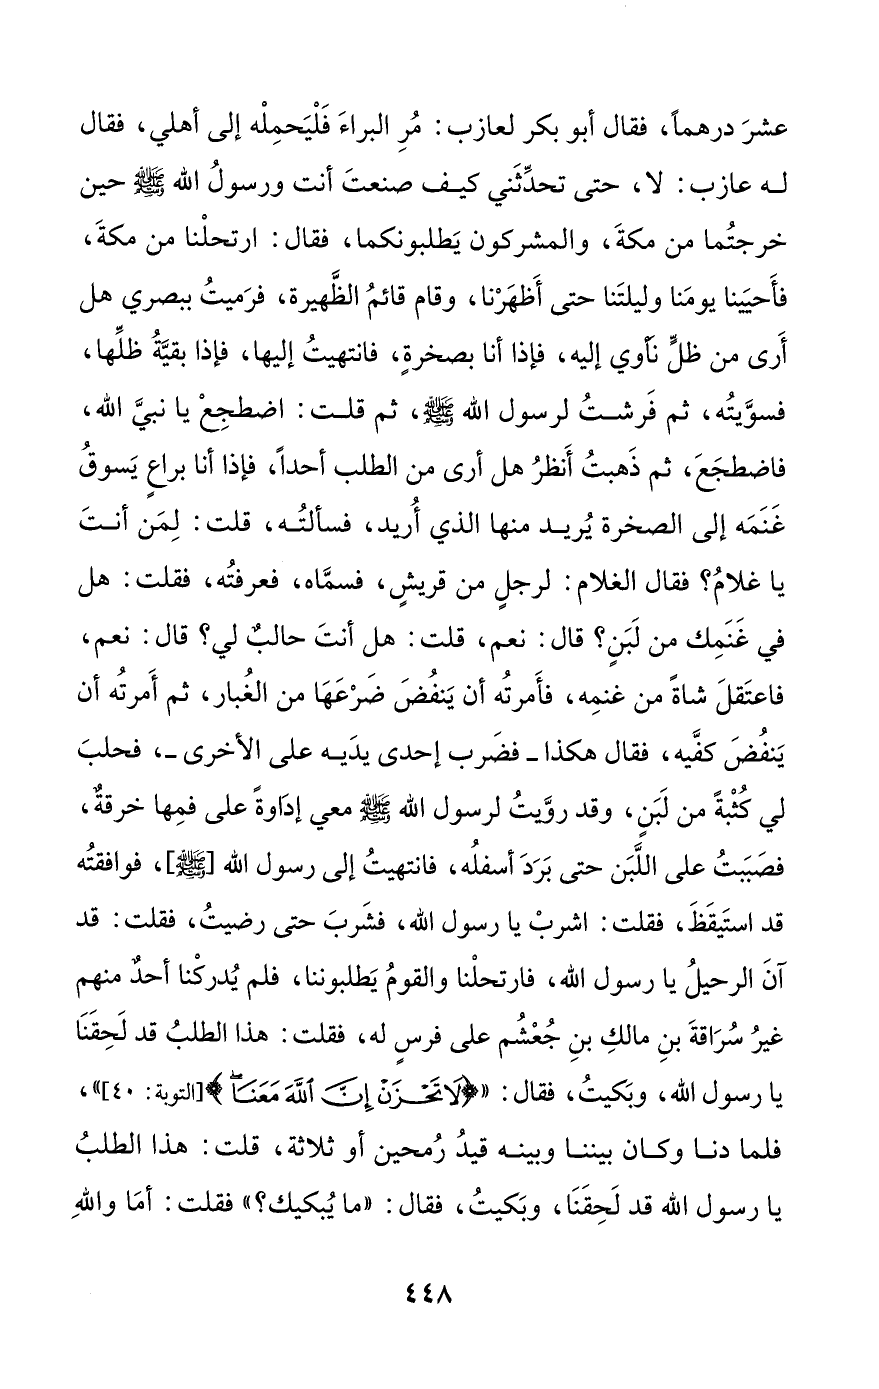 عشرَ درهماً، فقال أبو بكر لعازب: مُرِ البراءَ فَلْيَحمِلْه إلى أهلي، فقال
له عازب: لا، حتى تحدِّثَني كيف صنعتَ أنت ورسولُ الله ﷺ حين
خرجتُما من مكةَ، والمشركون يَطلبونكما، فقال: ارتحلْنا من مكةَ،
فأَحيَينا يومَنا وليلتَنا حتى أَظهَرْنا، وقام قائمُ الظَّهيرة، فرَميتُ ببصري هل
أَرى من ظلٍّ نأوي إليه، فإذا أنا بصخرةٍ، فانتهيتُ إليها، فإذا بقيَّةُ ظلِّها،
فسوَّيتُه، ثم فَرشتُ لرسول الله ﷺ، ثم قلت: اضطجِعْ يا نبيَّ الله،
فاضطجَعَ، ثم ذَهبتُ أَنظرُ هل أرى من الطلب أحداً، فإذا أنا براعٍ يَسوقُ
غَنَمَه إلى الصخرة يُريد منها الذي أُريد، فسألتُه، قلت: لِمَن أنتَ
يا غلامُ؟ فقال الغلام: لرجلٍ من قريشٍ، فسمَّاه، فعرفتُه، فقلت: هل
في غَنَمِك من لَبَنٍ؟ قال: نعم، قلت: هل أنتَ حالبٌ لي؟ قال: نعم،
فاعتَقلَ شاةً من غنمِه، فأَمرتُه أن يَنفُضَ ضَرْعَهَا من الغُبار، ثم أَمرتُه أن
يَنفُضَ كفَّيه، فقال هكذا ـ فضَرب إحدى يدَيه على الأخرى ـ، فحلبَ
لي كُثْبةً من لَبَنٍ، وقد روَّيتُ لرسول الله ﷺ معي إدَاوةً على فمِها خرقةٌ،
فصَبَبتُ على اللَّبَن حتى بَرَدَ أسفلُه، فانتهيتُ إلى رسول الله [ﷺ]، فوافقتُه
قد استَيقَظَ، فقلت: اشربْ يا رسول الله، فشَربَ حتى رضيتُ، فقلت: قد
آنَ الرحيلُ يا رسول الله، فارتحلْنا والقومُ يَطلبوننا، فلم يُدركْنا أحدٌ منهم
غيرُ سُرَاقةَ بنِ مالكِ بنِ جُعْشُم على فرسٍ له، فقلت: هذا الطلبُ قد لَحِقَنَا
يا رسول الله، وبَكيتُ، فقال: «﴿لَا تَحْزَنْ إِنَّ ٱللَّهَ مَعَنَاۖ﴾[التوبة: ٤٠]»،
فلما دنا وكان بيننا وبينه قيدُ رُمحين أو ثلاثة، قلت: هذا الطلبُ
يا رسول الله قد لَحِقَنَا، وبَكيتُ، فقال: «ما يُبكيك؟» فقلت: أمَا واللهِ
٤٤٨